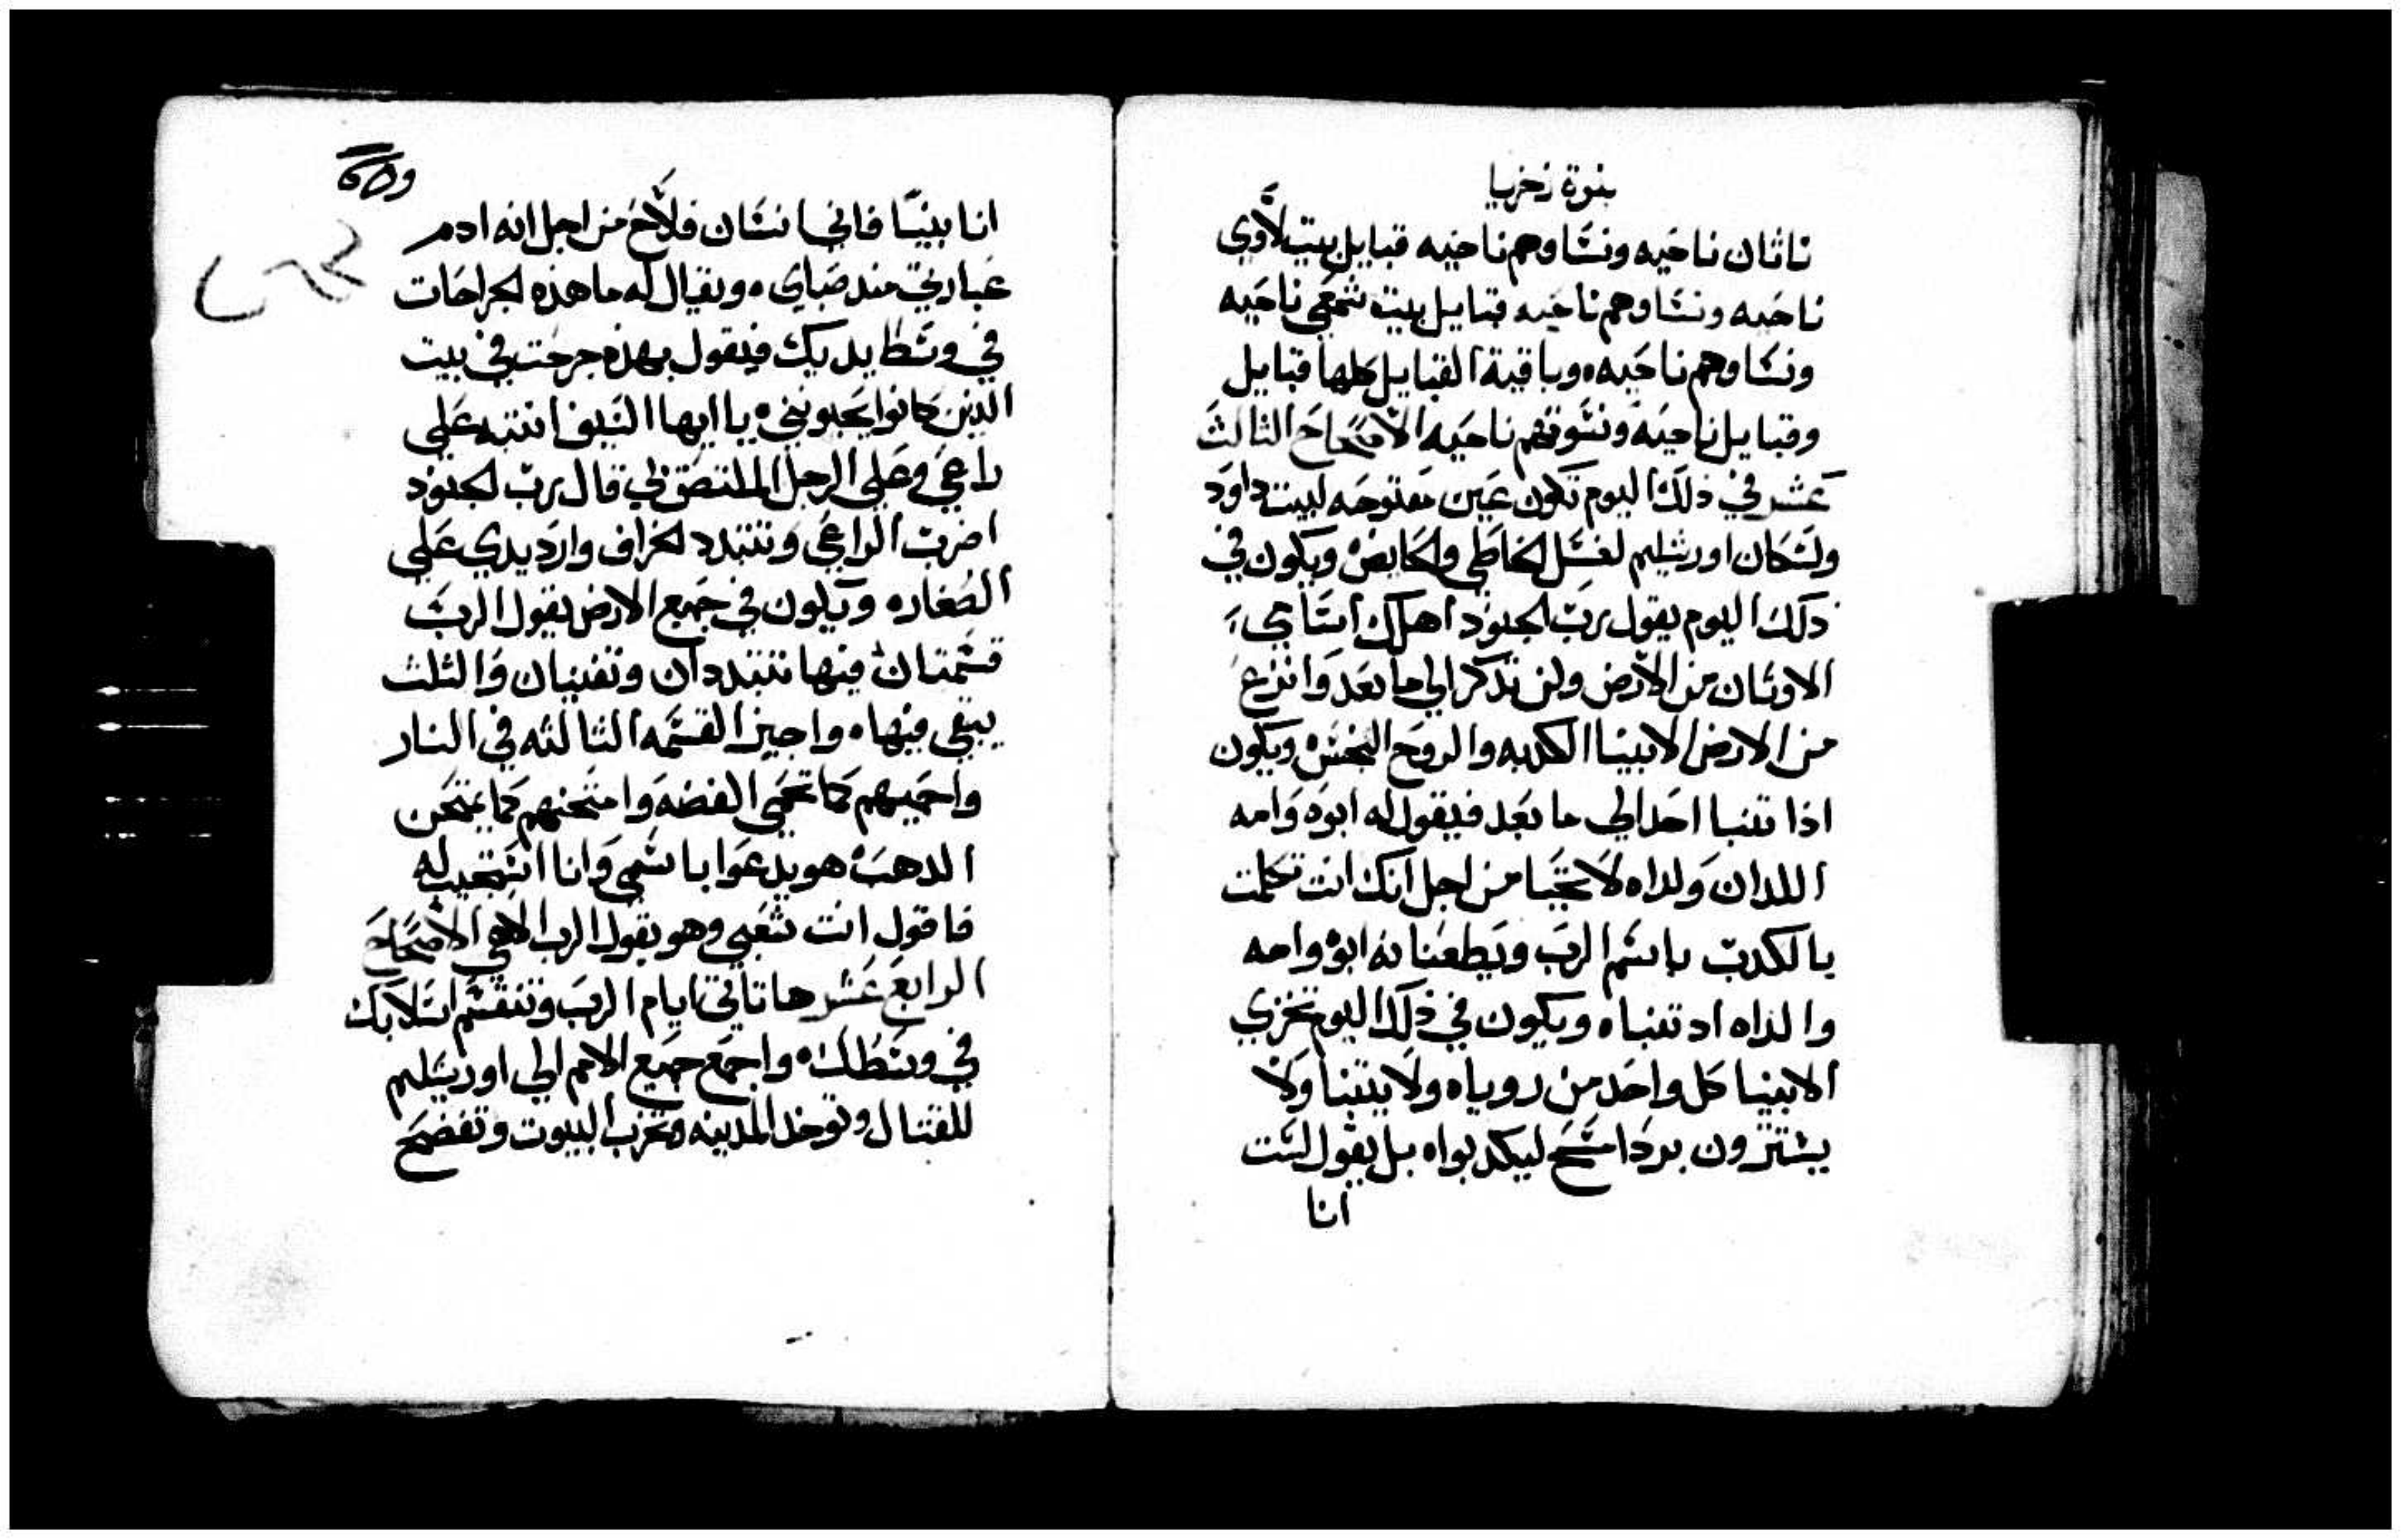 نبوة زخريا
ناثان ناحيه ونساوهم ناحيه قبايل بيت لاوي
ناحيه ونساوهم ناحيه قبايل بيت شمعي ناحيه
ونساوهم ناحيه وباقية القبايل كلها قبايل
وقبايل ناحيه ونسوتهم ناحيه الاصحاح الثالث
عشر في ذلك اليوم تكون عين مفتوحه لبيت داود
ولسكان اورشليم لغسل الخاطي والحايض ويكون في
ذلك اليوم يقول رب الجنود اهلك اسامي
الاوثان من الارض ولن تذكر الي ما بعد وانزع
من الارض الانبيا الكدبه والروح النجس ويكون
اذا تنبا احد الي ما بعد فيقول له ابوه وامه
اللدان ولداه لا تحيا من اجل انك انت تكلمت
بالكدب باسم الرب ويطعنانه ابوه وامه
والداه اد تنباه ويكون في ذلك اليوم تخزي
الانبيا كل واحد من روياه ولا يتنبا ولا
يستترون بردا مسح ليكدبواه بل يقول لست
انا
انا بنيا فاني انسان فلاح من اجل انه ادم
عبارتي مند صباي ويقال له ما هذه الجراحات
في وسط يديك فيقول بهذه جرحت في بيت
الذين كانوا يحبونني يا ايها السيف انتبه علي
راعي وعلي الرجل الملتصق لي قال رب الجنود
اضرب الراعي وتتبدد الخراف وارد يدي علي
الصغاره ويكون في جميع الارض يقول الرب
قسمتان فيها تتبددان وتفنيان والثلث
يبقي فيهاه واجيز القسمه الثالثه في النار
واحميهم كما تحمي الفضه وامتحنهم كما يمتحن
الدهب هو يدعوا باسمي وانا استجيب له
فاقول انت شعبي وهو يقول الرب الاهي الاصحاح
الرابع عشر ها تاتي ايام الرب وتنقسم اسلابك
في وسطك واجمع جميع الامم الي اورشليم
للقتال وتوخد المدينه وتخرب البيوت وتفضح